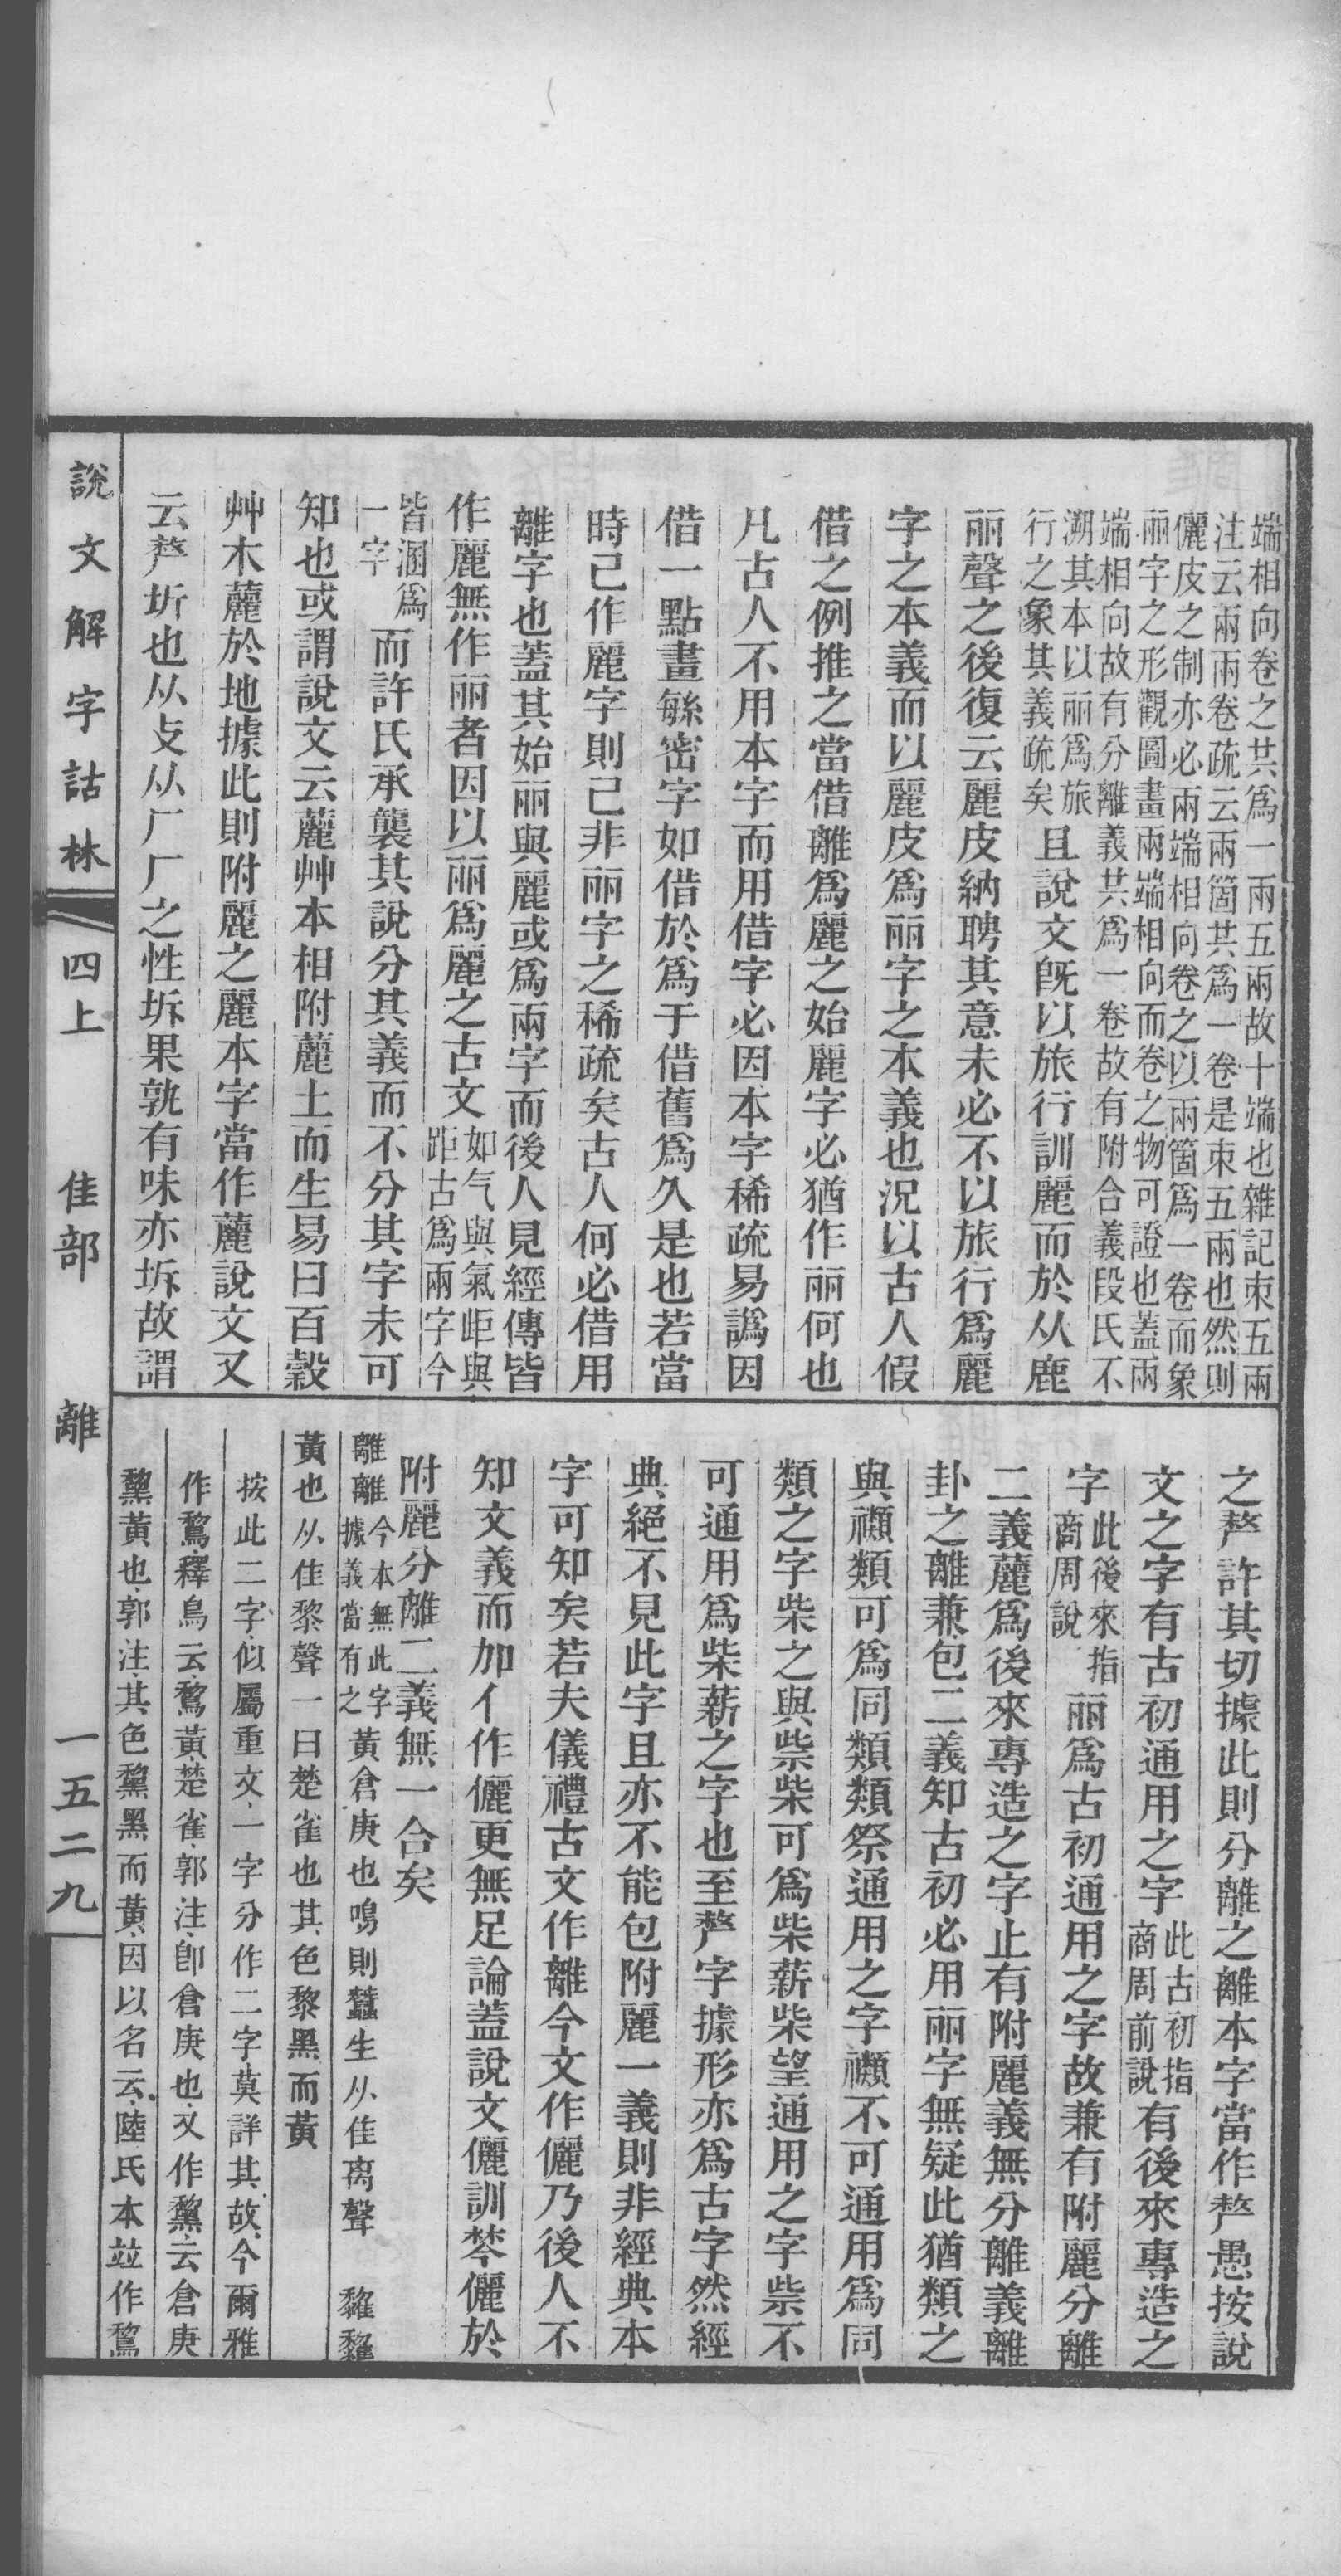 端相向卷之共爲一兩五兩故十端也雜記束五兩
注云兩兩卷疏云兩箇其爲一卷是束五兩也然則
儷皮之制亦必兩端相向卷之以兩箇爲一卷而象
丽字之形觀圖畫兩端相向而卷之物可證也蓋兩
端相向故有分離義共爲一卷故有附合義段氏不
溯其本以丽爲旅
行之象其義疏矣
且說文旣以旅行訓麗而於从鹿
丽聲之後復云麗皮納聘其意未必不以旅行爲麗
字之本義而以麗皮爲丽字之本義也況以古人假
借之例推之當借離爲麗之始麗字必猶作丽何也
凡古人不用本字而用借字必因本字稀疏易譌因
借一點畫緐密字如借於爲于借舊爲久是也若當
時已作麗字則已非丽字之稀疏矣古人何必借用
離字也蓋其始丽與麗或爲兩字而後人見經傳皆
作麗無作丽者因以丽爲麗之古文
如气與氣歫與
距古爲兩字今
皆溷爲
一字
而許氏承襲其說分其義而不分其字未可
知也或謂說文云蘸艸木相附蘸土而生易曰百穀
艸木蘸於地據此則附麗之麗本字當作蘸說文又
云𠩺坼也从攴从厂厂之性坼果孰有味亦坼故謂
之𠩺許其切據此則分離之離本字當作𠩺愚按說
文之字有古初通用之字
此古初指
商周前說
有後來專造之
字
此後來指
商周說
丽爲古初通用之字故兼有附麗分離
二義蘸爲後來專造之字止有附麗義無分離義離
卦之離兼包二義知古初必用丽字無疑此猶類之
與禷類可爲同類類祭通用之字禷不可通用爲同
類之字柴之與祡柴可爲柴薪柴望通用之字祡不
可通用爲柴薪之字也至𠩺字據形亦爲古字然經
典絕不見此字且亦不能包附麗一義則非經典本
字可知矣若夫儀禮古文作離今文作儷乃後人不
知文義而加亻作儷更無足論蓋說文儷訓棽儷於
附麗分離二義無一合矣
離離
今本無此字
據義當有之
黃倉庚也鳴則蠶生从隹离聲
黃也从隹黎聲一曰楚雀也其色黎黑而黃
按此二字似屬重文一字分作二字莫詳其故今爾雅
作鵹釋鳥云鵹黃楚雀郭注卽倉庚也又作鸝云倉庚
鸝黃也郭注其色鸝黑而黃因以名云陸氏本竝作鵹
說文解字詁林
四上
隹部
離
一五二九